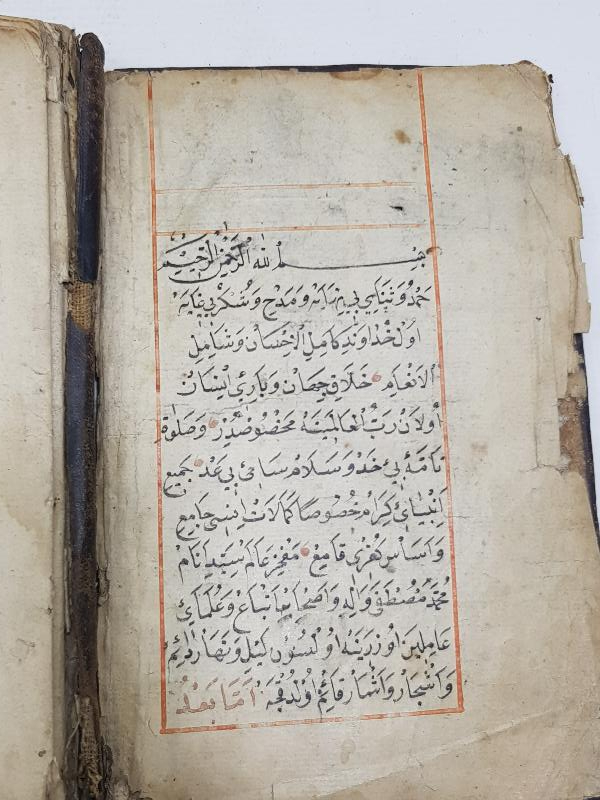 بِسْمِ اللّٰهِ الرَّحْمٰنِ الرَّحِيْمِ
حَمْدُ وَثَنَايِ بِي نِهَايَه وَمَدْحِ وَشُكْرِ بِي غَايَه
اَوْلْ خُدَاوَنْدِ كَامِلِ الْاِحْسَانْ وَشَامِلِ
الْاَنْعَامِ خَلَّاقِ جِهَانْ وَبَارِئِ اِنْسَانْ
اُولَانْ رَبُّ الْعَالَمِينَه مَخْصُوصْدُرْ وَصَلٰوةِ
تَامَّهٔ بِي حَدْ وَسَلَامِ سَامِيِ بِي عَدْ جَمِيعِ
اَنْبِيَايِ كِرَامْ خُصُوصًا كَمَالَاتِ اِنْسِي جَامِعِ
وَاَسَاسِ كُفْرِي قَامِعْ مَفْخَرِ عَالَمْ سَيِّدِ اَنَامْ
مُحَمَّدْ مُصْطَفٰى وَاٰلِه وَاَصْحَابِ اَتْبَاعْ وَعُلَمَايِ
عَامِلِينْ اُوزَرِينَه اُولْسُونْ لَيْلْ وَنَهَارْ دَائِمْ
وَاَشْجَارْ وَاَثْمَارْ قَائِمْ اُولْدُقْجَه اَمَّا بَعْدُ